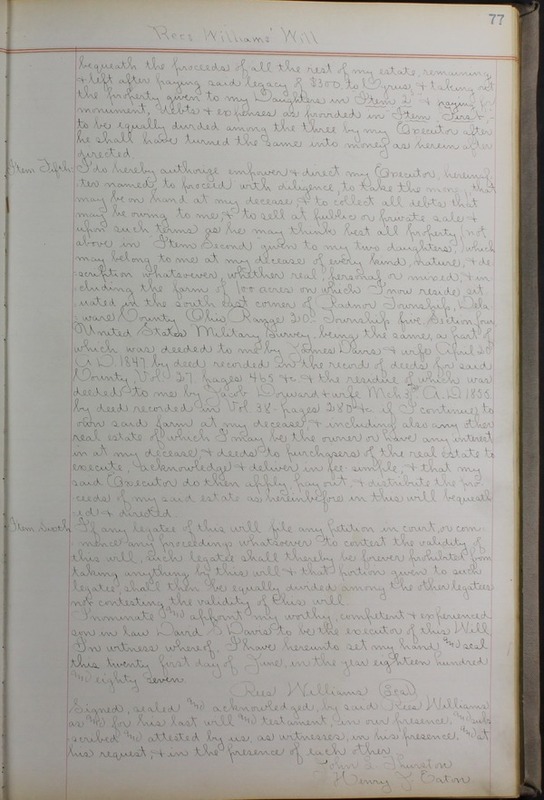 77
Rees Williams' Will
bequeath the proceeds of all the rest of my estate, remaining
& left after paying said legacy of $300 to Cyrus & taking out
the property given to my Daughters in Item 2 & paying for
monument, debts & expenses as provided in Item First,
to be equally divided among the three by my Executor after
he shall have turned the same into money as herein after
directed.
Item Fifth. I do hereby authorize empower & direct my Executor, hereinaf-
ter named, to proceed with diligence, to take the money that
may be on hand at my decease, & to collect all debts that
may be owing to me, & to sell at public or private sale &
upon such terms as he may think best all property (not
above in Item Second given to my two daughters) which
may belong to me at my decease of every kind, nature, & de-
scription whatsoever, whether real, personal or mixed, & in-
cluding the farm of 100 acres on which I now reside, sit-
uated in the south east corner of Radnor Township, Dela-
ware County Ohio Range 20. Township five, Section four
United States Military Survey, being the same, a part of
which was deeded to me by James Davis & wife April 20
A.D. 1847 by deed recorded in the record of deeds for said
County Vol 27 pages 465 &c & the residue of which was
deeded to me by Jacob & wife Mch 3rd A.D. 1855
by deed recorded in Vol 38. pages 280 &c if I continue to
own said farm at my decease, & including also any other
real estate of which I may be the owner or have any interest
in at my decease & deeds to purchasers of the real estate to
execute, acknowledge & deliver in fee simple, & that my
said Executor do then apply, pay out, & distribute the pro-
ceeds of my said estate as hereinbefore in this will bequeath-
ed & directed.
Item Sixth If any legatee of this will file any petition in court, or com-
mence any proceedings whatsoever to contest the validity of
this will, such legatee shall thereby be forever prohibited from
taking anything by this will & that portion given to such
legatee, shall then be equally divided among the other legatees
not contesting the validity of this will.
I nominate and appoint my worthy, competent & experienced
son in law David S. Davis to be the executor of this Will.
In witness whereof, I have hereunto set my hand and seal
this twenty first day of June, in the year eighteen hundred
and eighty seven.
Rees Williams (Seal)
Signed, sealed and acknowledged, by said Rees Williams
as and for his last will and testament, in our presence, and sub-
scribed and attested by us, as witnesses, in his presence, and at
his request, & in the presence of each other.
John Thurston
Henry J. Eaton